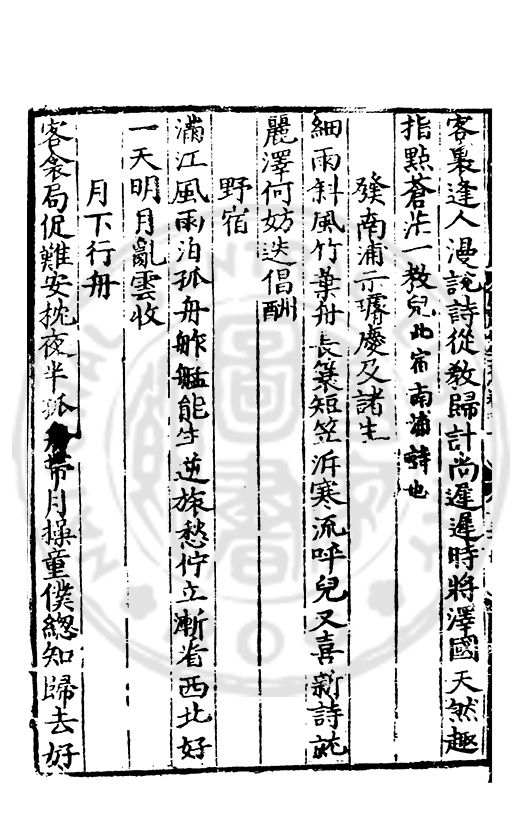 客裏逢人漫說詩從教歸計尚遲遲時將澤國天然趣
指點蒼茫一教兒此宿南浦韓也
發南浦示璩慶及諸生
細雨斜風竹葉舟長簑短笠泝寒流呼兒又喜新詩就
麗澤何妨迭倡酬
野宿
滿江風雨泊孤舟舴艋能生逆旅愁佇立漸看西北好
一天明月亂雲收
月下行舟
客衾局促難安枕夜半孤舟帶月操童僕總知歸去好